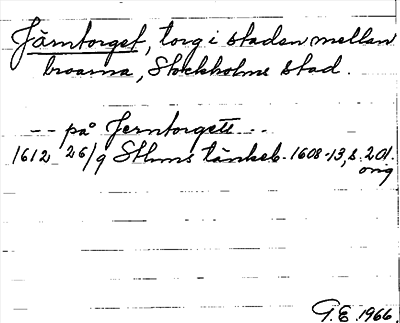 Järntorget, torg i staden mellan
broarna, Stockholms stad.
-- på Jerntorgett --
1612 26/9 Sthms tänkeb. 1608-13, s. 201.
orig
G.E. 1966.